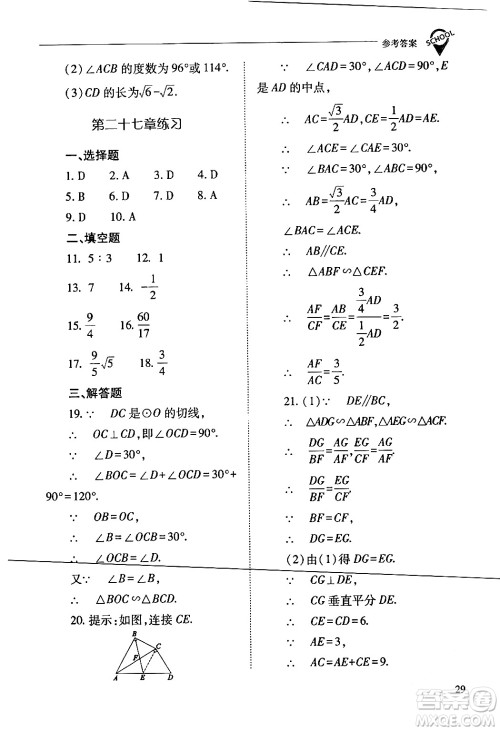 参考答案
SCHOOL
(2) ∠ACB 的度数为 96°或 114°.
(3) CD 的长为√6-√2.
第二十七章练习
一、选择题
1. D 2. A 3. D 4. C
5. B 6. D 7. D 8. A
9. D 10. A
二、填空题
11. 5∶3 12. 1
13. 7 14. -1/2
15. 9/4 16. 60/17
17. 9/5√5 18. 3/4
三、解答题
19. ∵ DC 是⊙O 的切线,
∴ OC⊥CD,即∠OCD=90°.
∵ ∠D=30°,
∴ ∠BOC=∠D+∠OCD=30°+
90°=120°.
∵ OB=OC,
∴ ∠B=∠OCB=30°.
∴ ∠OCB=∠D.
又∵ ∠B=∠B,
∴ △BOC∽△BCD.
20. 提示:如图,连接 CE.
B
C
F
A E D
∵ ∠CAD=30°,∠ACD=90°,E
是 AD 的中点,
∴ AC=√3/2AD,CE=1/2AD=AE.
∴ ∠ACE=∠CAE=30°.
∴ AB=√3/2AC=3/4AD,
∠BAC=∠ACE.
∴ AB∥CE.
∴ △ABF∽△CEF.
∴ AF/CF=AB/CE=3/4AD/1/2AD=3/2.
∴ AF/AC=3/5.
21. (1)∵ DE∥BC,
∴ △ADG∽△ABF,△AEG∽△ACF.
∴ DG/BF=AG/AF,EG/CF=AG/AF.
∴ DG/BF=EG/CF.
∵ BF=CF,
∴ DG=EG.
(2)由(1)得 DG=EG.
∵ CG⊥DE,
∴ CG 垂直平分 DE.
∴ CE=CD=6.
∵ AE=3,
∴ AC=AE+CE=9.
29